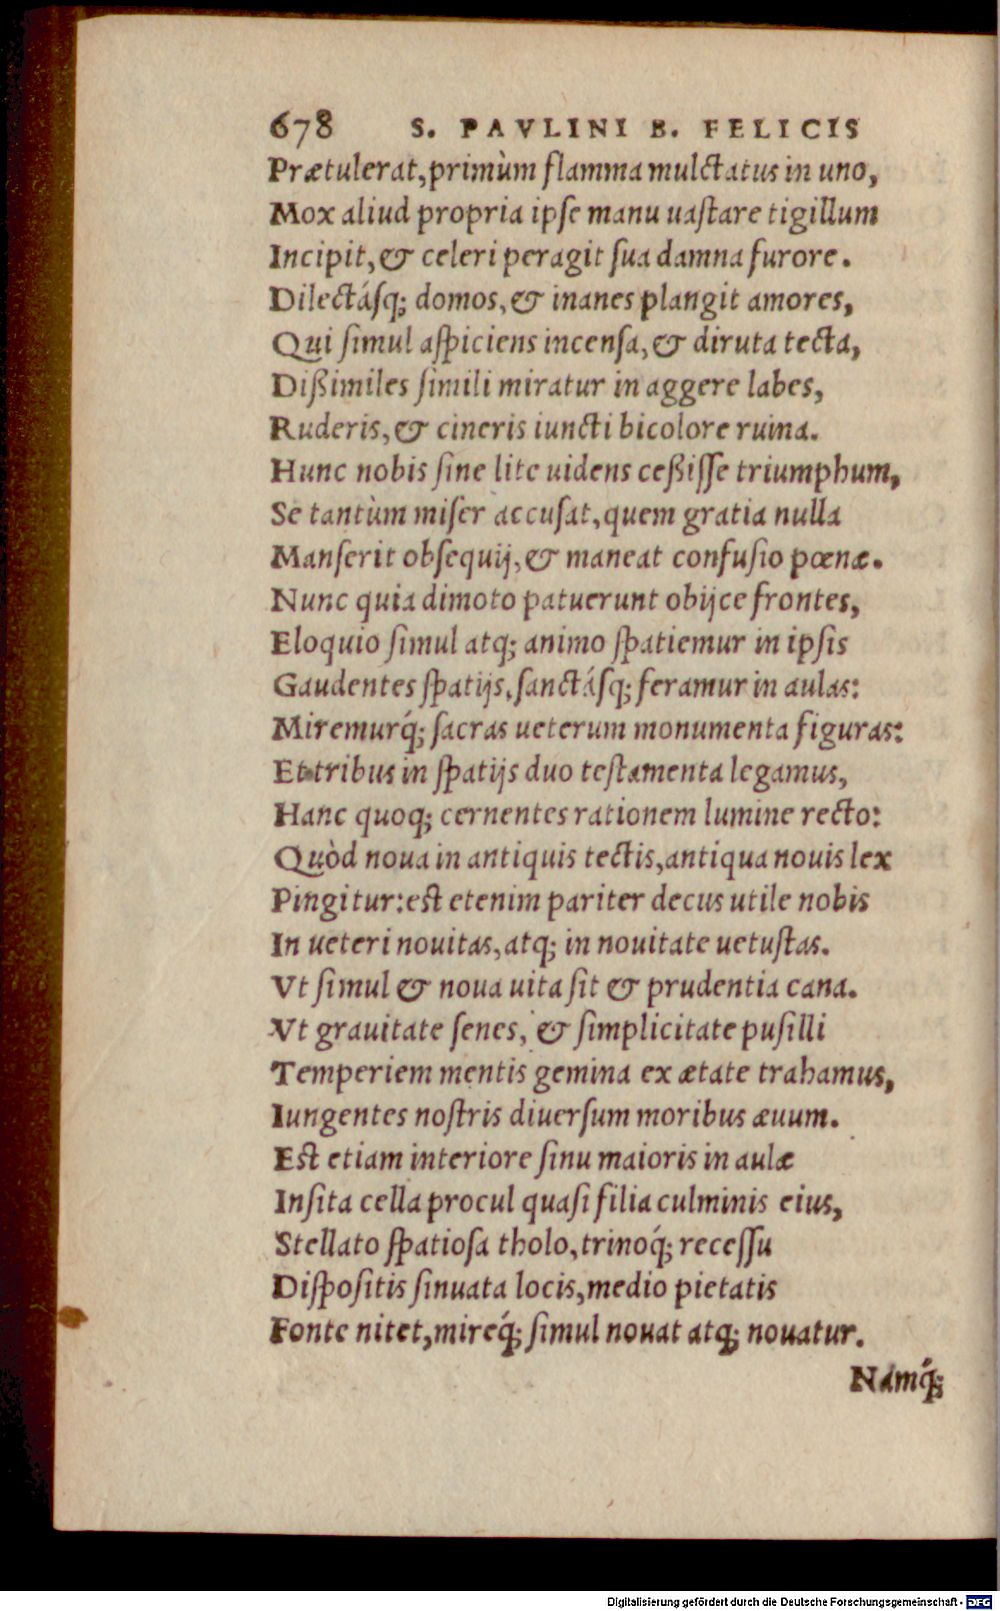 678 S. PAVLINI B. FELICIS
Prætulerat, primùm flamma mulctatus in uno,
Mox aliud propria ipſe manu uaſtare tigillum
Incipit, & celeri peragit ſua damna furore.
Dilectáſq; domos, & inanes plangit amores,
Qui ſimul aſpiciens incenſa, & diruta tecta,
Dißimiles ſimili miratur in aggere labes,
Ruderis, & cineris iuncti bicolore ruina.
Hunc nobis ſine lite uidens ceßiſſe triumphum,
Se tantùm miſer accuſat, quem gratia nulla
Manſerit obſequij, & maneat confuſio pœnæ.
Nunc quia dimoto patuerunt obijce frontes,
Eloquio ſimul atq; animo ſpatiemur in ipſis
Gaudentes ſpatijs, ſanctáſq; feramur in aulas:
Miremurq́; ſacras ueterum monumenta figuras:
Et tribus in ſpatijs duo teſtamenta legamus,
Hanc quoq; cernentes rationem lumine recto:
Quòd noua in antiquis tectis, antiqua nouis lex
Pingitur: est etenim pariter decus utile nobis
In ueteri nouitas, atq; in nouitate uetuſtas.
Vt ſimul & noua uita ſit & prudentia cana.
Vt grauitate ſenes, & ſimplicitate puſilli
Temperiem mentis gemina ex ætate trahamus,
Iungentes noſtris diuerſum moribus æuum.
Est etiam interiore ſinu maioris in aulæ
Inſita cella procul quaſi filia culminis eius,
Stellato ſpatioſa tholo, trinoq́; receſſu
Diſpoſitis ſinuata locis, medio pietatis
Fonte nitet, mireq́; ſimul nouat atq; nouatur.
Namq́;
Digitalisierung gefördert durch die Deutsche Forschungsgemeinschaft - DFG